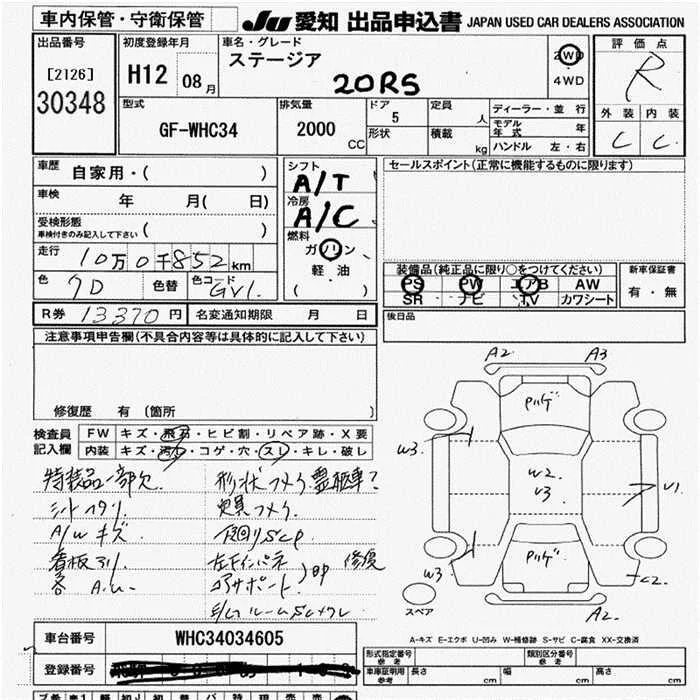 車内保管・守衛保管
JU 愛知 出品申込書 JAPAN USED CAR DEALERS ASSOCIATION
出品番号
[2126]
30348
初度登録年月
H12 08月
車名・グレード
ステージア
20RS
2WD
4WD
評価点
R
外装 内装
C C
型式
GF-WHC34
排気量
2000 CC
ドア
5
形状
定員
人
積載
kg
ディーラー・並行
モデル年式 年
ハンドル 左・右
車歴 自家用・( )
車検 年 月( 日)
受検形態
車検付きのみ記入して下さい ( )
走行 10万0千852km
色 色替 色コード GV1
シフト
A/T
冷房
A/C
燃料
ガソリン
軽油
( )
セールスポイント(正常に機能するものに限ります)
装備品(純正品に限り○をつけてください)
PS PW エアB AW
SR ナビ TV カワシート
新車保証書
有・無
後日品
R券 13370円 名変通知期限 月 日
注意事項申告欄(不具合内容等は具体的に記入して下さい)
修復歴 有(箇所 )
検査員記入欄
FW キズ・飛石・ヒビ割・リペア跡・X要
内装 キズ・汚レ・コゲ・穴・スレ・キレ・破レ
特装品一部欠
A/W キズ
形状フメイ霊柩車?
下廻りSCP
修復
A2 A3
W3
W2
V3
V1
W3
C2
A2
スペア
A-キズ E-エクボ U-凹み W-補修跡 S-サビ C-腐食 XX-交換済
車台番号 WHC34034605
登録番号
形式指定番号 参考
類別区分番号 参考
車庫証明用 参考 長さ cm 幅 cm 高さ cm